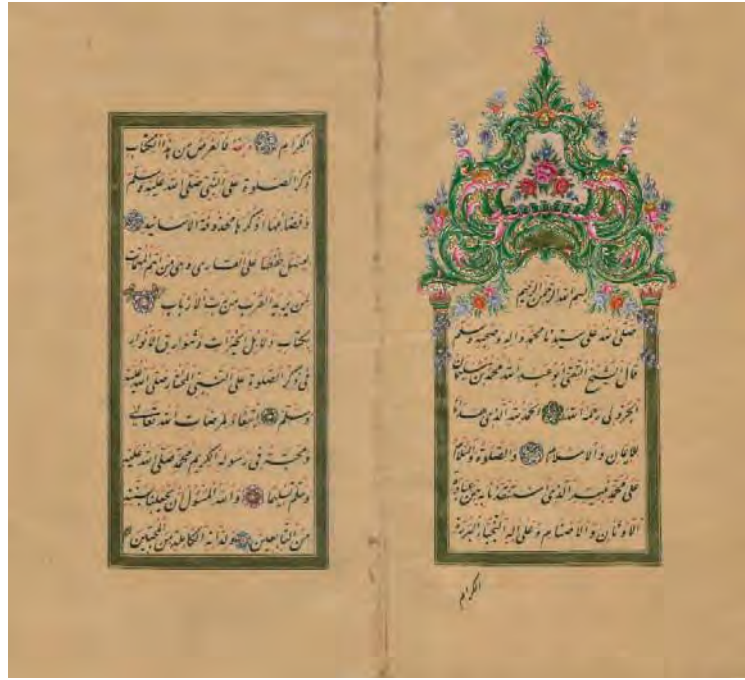 بسم الله الرحمن الرحيم
صلى الله على سيدنا محمد واله وصحبه وسلم
قال الشيخ الفقيه أبو عبد الله محمد بن سليمان
الجزولى رحمه الله الحمد لله الذى هدانا
للايمان والاسلام والصلوة والسلام
على محمد نبيه الذى استنقذنا به من عبادة
الاوثان والاصنام وعلى اله النجباء البررة
الكرام
الكرام وبعد فالغرض من هذا الكتاب
ذكر الصلوة على النبى صلى الله عليه وسلم
وفضائلها اذكرها محذوفة الاسانيد
ليسهل حفظها على القارى وهى من اهم المهمات
لمن يريد القرب من رب الارباب
بكتاب دلائل الخيرات وشوارق الانوار
فى ذكر الصلوة على النبى المختار صلى الله عليه
وسلم ابتغاء لمرضات الله تعالى
ومحبة فى رسوله الكريم محمد صلى الله عليه
وسلم تسليما والله المسؤل أن يجعلنا لسنته
من التابعين ولذاته الكاملة من المحبين